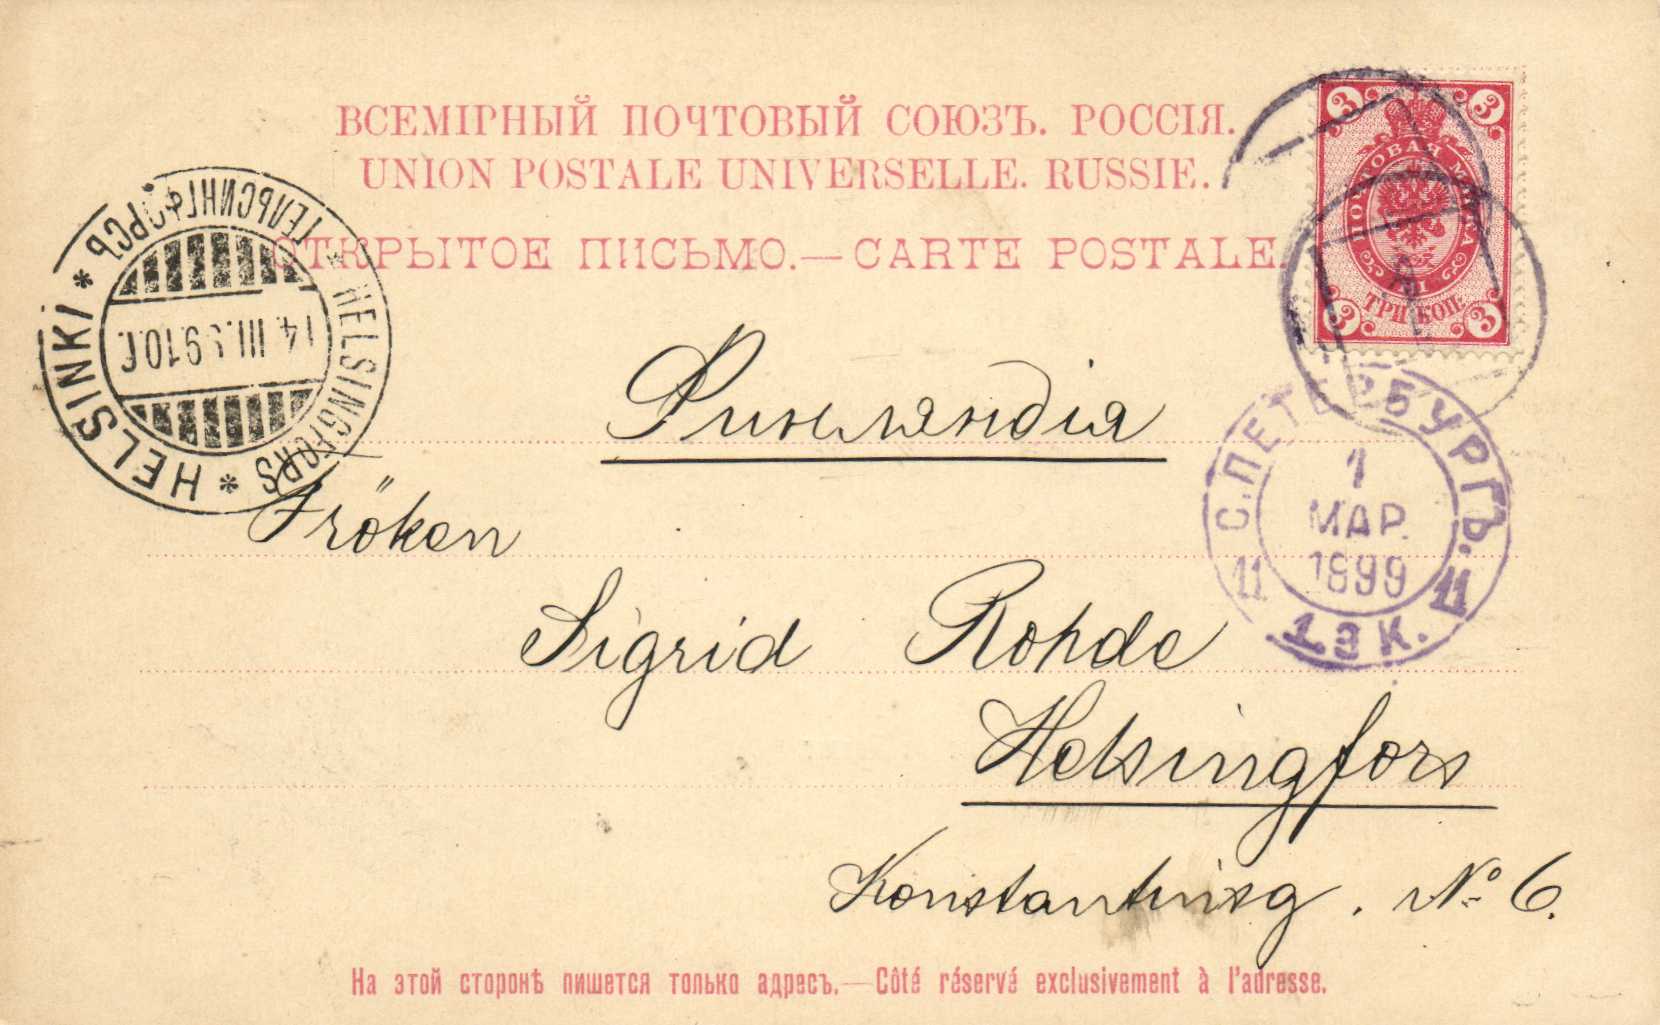 ВСЕМІРНЫЙ ПОЧТОВЫЙ СОЮЗЪ. РОССІЯ.
UNION POSTALE UNIVERSELLE. RUSSIE.
ОТКРЫТОЕ ПИСЬМО.—CARTE POSTALE.
3 3
ПОЧТОВАЯ МАРКА
ТРИ КОП.
3 3
ГЕЛЬСИНГФОРСЪ * HELSINGFORS * HELSINKI *
14. III. 99 10
С.ПЕТЕРБУРГЪ.
1
МАР.
1899
11 11
1 Э К.
Финляндія
Fröken
Sigrid Rohde
Helsingfors
Konstantinsg. No 6.
На этой сторонѣ пишется только адресъ.—Côté réservé exclusivement à l'adresse.